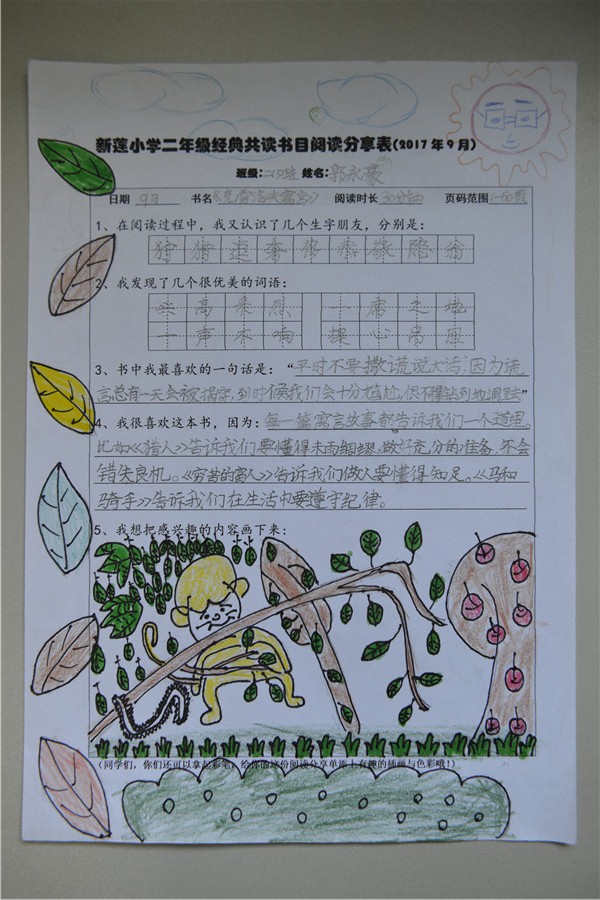 新莲小学二年级经典共读书目阅读分享表(2017年9月)
班级: 姓名:郭永豪
日期 9月 书名《克雷洛夫寓言》 阅读时长 30分钟 页码范围
1、在阅读过程中，我又认识了几个生字朋友，分别是：
狩 猎 奢
2、我发现了几个很优美的词语：
兴高采烈 一席之地
一声不响 提心吊胆
3、书中我最喜欢的一句话是：“平时不要撒谎说大话，因为谎
言总有一天会被揭穿，到时候我们会十分尴尬，恨不得钻到地洞里去”
4、我很喜欢这本书，因为：每一篇寓言故事都告诉我们一个道理。
比如《猎人》告诉我们要懂得未雨绸缪，做好充分的准备，不会
错失良机。《穷苦的富人》告诉我们做人要懂得知足。《马和
骑手》告诉我们在生活中要遵守纪律。
5、我想把感兴趣的内容画下来：
(同学们，你们还可以拿起彩笔，给你的这份阅读分享单添上有趣的插画与色彩哦！)